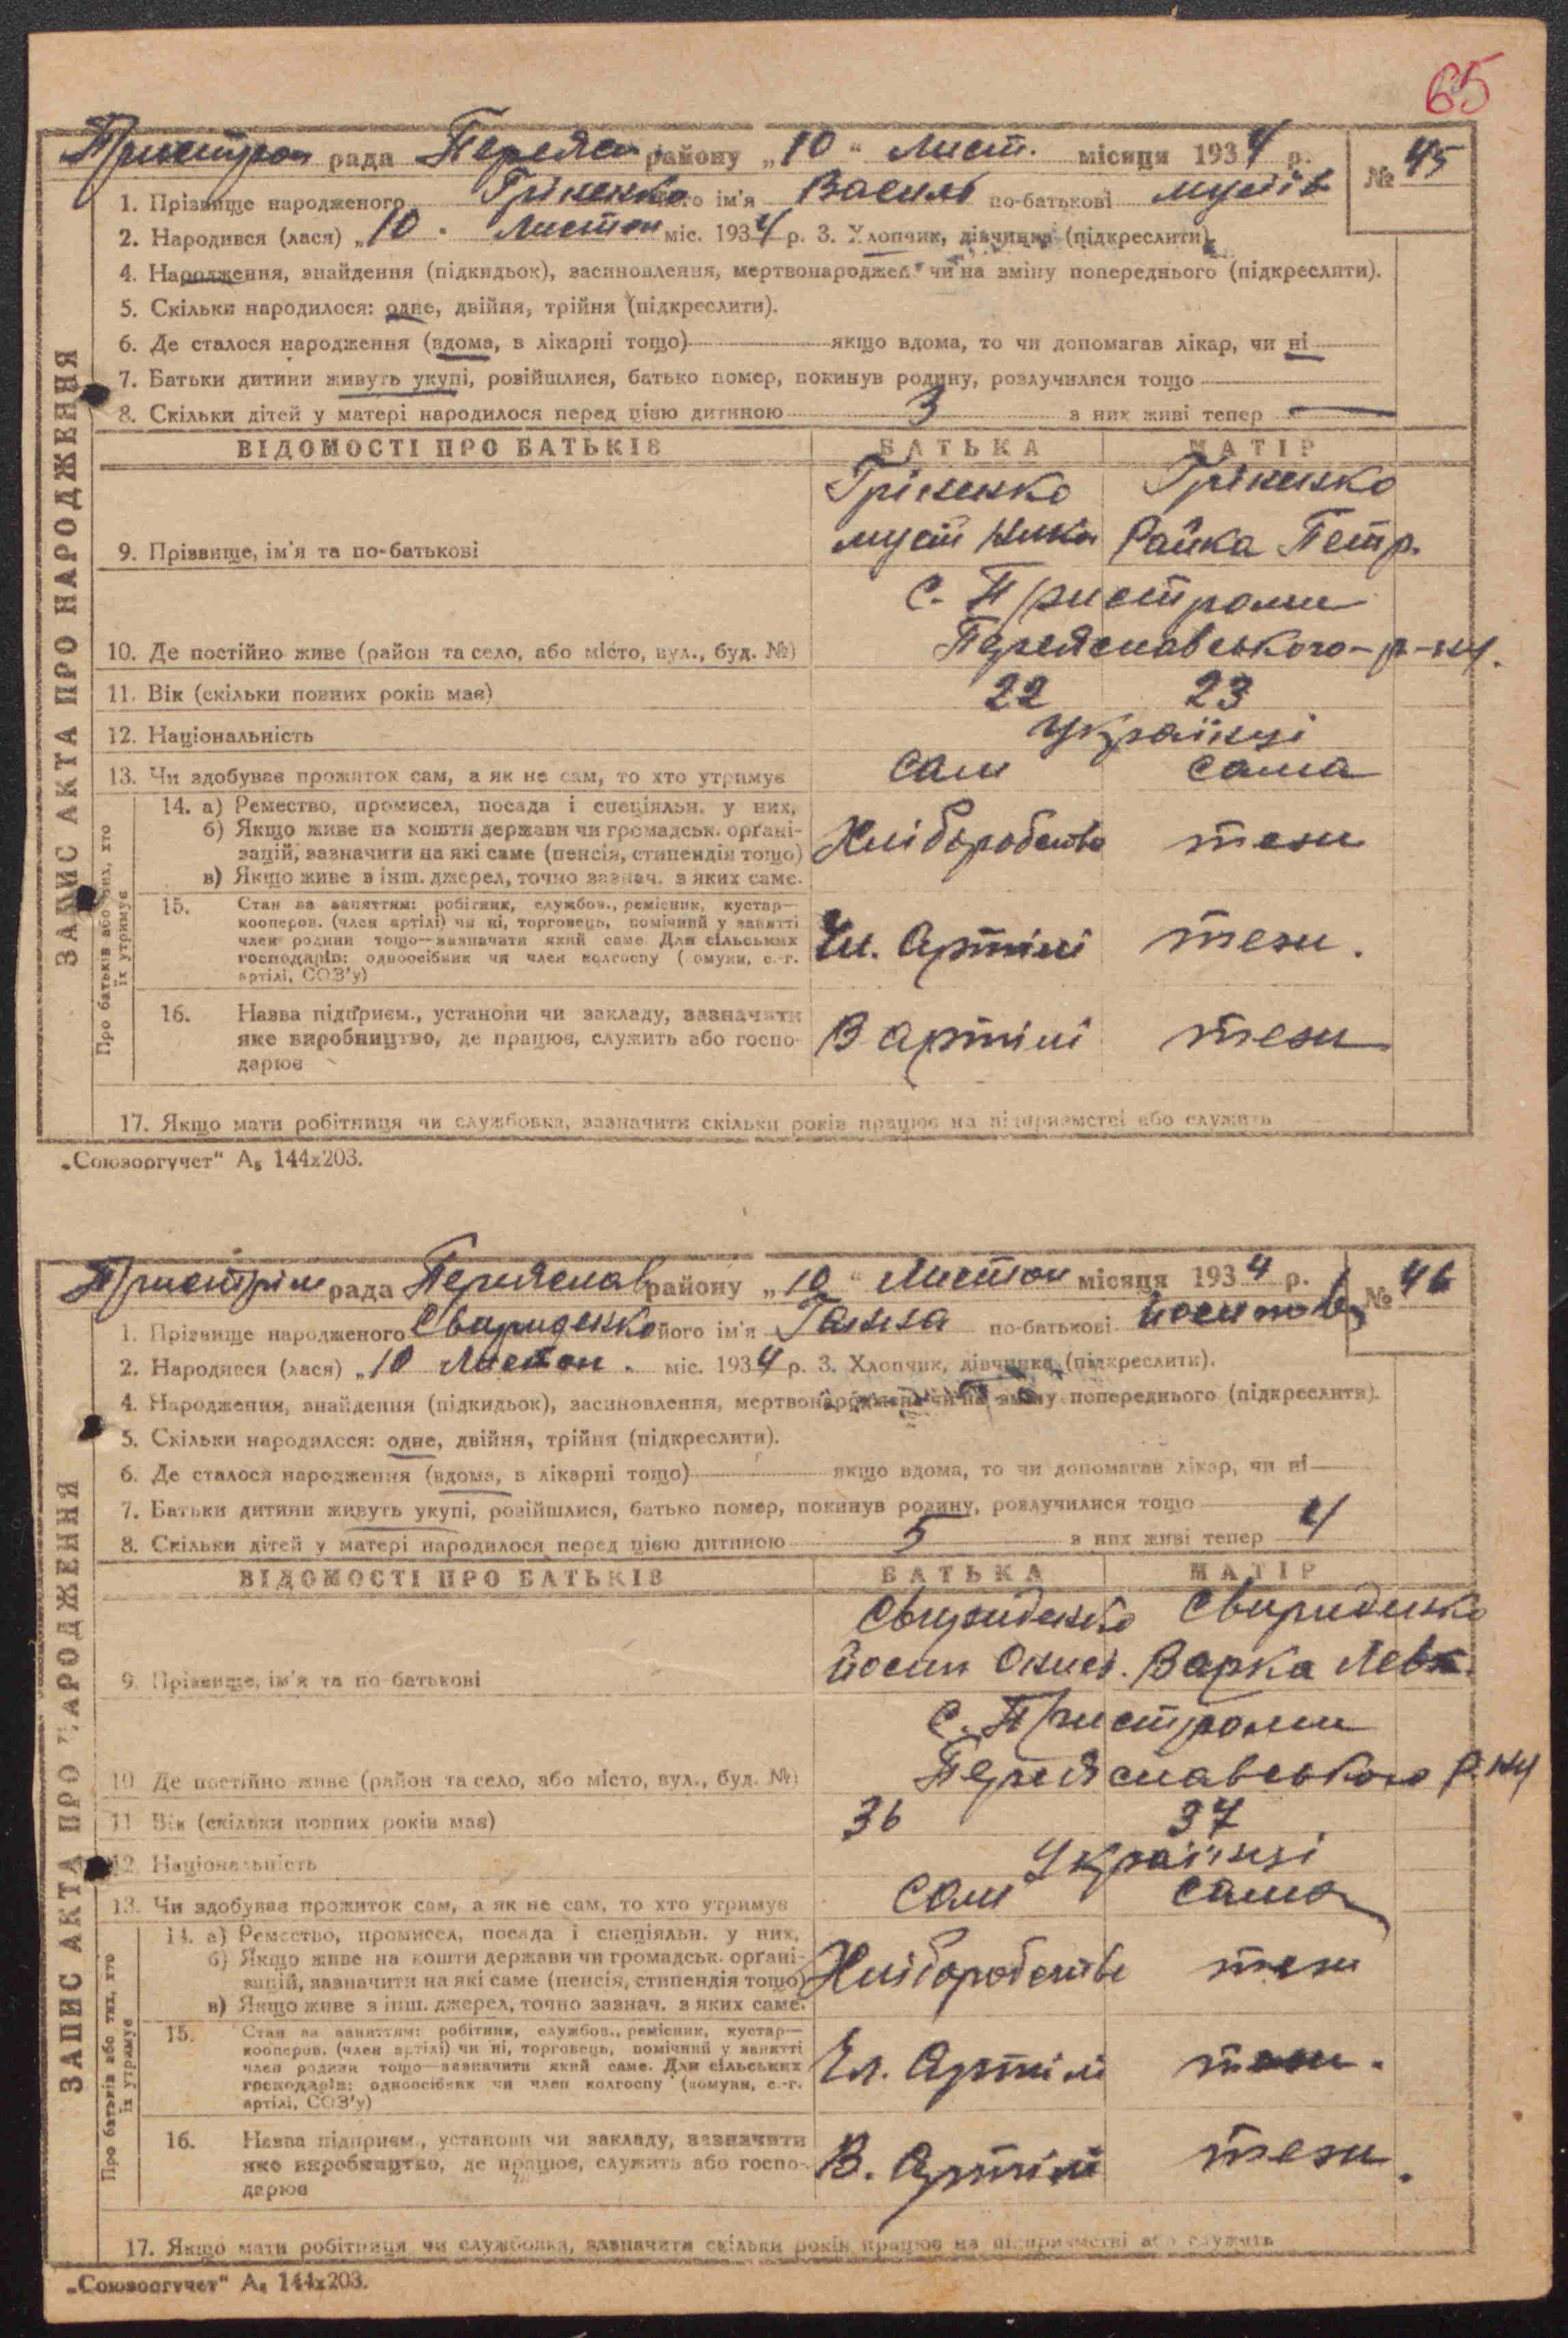 65
Пристром рада Переясл району „10“ Лист. місяця 1934 р. № 45
1. Прізвище народженого Гріненко його ім'я Василь по-батькові мусіїв
2. Народився (лася) „10 . Листоп міс. 1934 р. 3. Хлопчик, дівчинка (підкреслити).
4. Народження, знайдення (підкидьок), засиновлення, мертвонароджен. чи на зміну попереднього (підкреслити).
5. Скільки народилося: одне, двійня, трійня (підкреслити).
6. Де сталося народження (вдома, в лікарні тощо) якщо вдома, то чи допомагав лікар, чи ні
7. Батьки дитини живуть укупі, розійшлися, батько помер, покинув родину, розлучилися тощо
8. Скільки дітей у матері народилося перед цією дитиною 3 з них живі тепер —
ЗАПИС АКТА ПРО НАРОДЖЕННЯ
ВІДОМОСТІ ПРО БАТЬКІВ БАТЬКА МАТІР
Гріненко Гріненко
9. Прізвище, ім'я та по-батькові мусій Ники Райка Петр.
с. Пристроми
10. Де постійно живе (район та село, або місто, вул., буд. №) Переяславського-р-ну.
11. Вік (скільки повних років має) 22 23
12. Національність Українці
13. Чи здобував прожиток сам, а як не сам, то хто утримує сам сама
Про батьків або тих, хто їх утримує
14. а) Ремество, промисел, посада і спеціяльн. у них.
б) Якщо живе на кошти держави чи громадськ. орґані-
зацій, зазначити на які саме (пенсія, стипендія тощо) Хліборобство тези
в) Якщо живе з інш. джерел, точно зазнач. з яких саме.
15. Стан за заняттям: робітник, службов., ремісник, кустар—
кооперов. (член артілі) чи ні, торговець, помічний у занятті
член родини тощо—зазначити який саме. Для сільських Чл. Артілі тези.
господарів: одноосібник чи член колгоспу (комуни, с.-г.
артілі, СОЗ'у)
16. Назва підприєм., установи чи закладу, зазначити
яке виробництво, де працює, служить або госпо- В артілі тези
дарює
17. Якщо мати робітниця чи службовка, зазначити скільки років працює на підприємстві або служить
„Союзоргучет“ А₅ 144х203.
Пристріми рада Переяслав району „10“ Листоп місяця 1934 р. № 46
1. Прізвище народженого Свириденко його ім'я Ганна по-батькові Йосипов
2. Народився (лася) „10 Листоп. міс. 1934 р. 3. Хлопчик, дівчинка (підкреслити).
4. Народження, знайдення (підкидьок), засиновлення, мертвонароджен. чи на зміну попереднього (підкреслити).
5. Скільки народилося: одне, двійня, трійня (підкреслити).
6. Де сталося народження (вдома, в лікарні тощо) якщо вдома, то чи допомагав лікар, чи ні
7. Батьки дитини живуть укупі, розійшлися, батько помер, покинув родину, розлучилися тощо
8. Скільки дітей у матері народилося перед цією дитиною 5 з них живі тепер 4
ЗАПИС АКТА ПРО НАРОДЖЕННЯ
ВІДОМОСТІ ПРО БАТЬКІВ БАТЬКА МАТІР
Свириденко Свириденко
9. Прізвище, ім'я та по-батькові Йосип Онис. Варка Левк.
с. Пристроми
10. Де постійно живе (район та село, або місто, вул., буд. №) Переяславського р-ну
11. Вік (скільки повних років має) 36 37
12. Національність Українці
13. Чи здобував прожиток сам, а як не сам, то хто утримує сам сама
Про батьків або тих, хто їх утримує
14. а) Ремество, промисел, посада і спеціяльн. у них.
б) Якщо живе на кошти держави чи громадськ. орґані-
зацій, зазначити на які саме (пенсія, стипендія тощо) Хліборобство тези
в) Якщо живе з інш. джерел, точно зазнач. з яких саме.
15. Стан за заняттям: робітник, службов., ремісник, кустар—
кооперов. (член артілі) чи ні, торговець, помічний у занятті
член родини тощо—зазначити який саме. Для сільських Чл. Артілі тези.
господарів: одноосібник чи член колгоспу (комуни, с.-г.
артілі, СОЗ'у)
16. Назва підприєм., установи чи закладу, зазначити
яке виробництво, де працює, служить або госпо- В. Артілі тези.
дарює
17. Якщо мати робітниця чи службовка, зазначити скільки років працює на підприємстві або служить
„Союзоргучет“ А₅ 144х203.